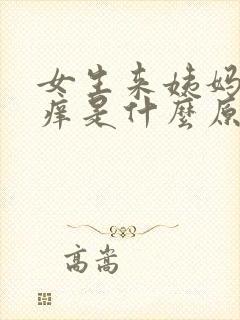 女生来姨妈
痒是什麼原
高嵩